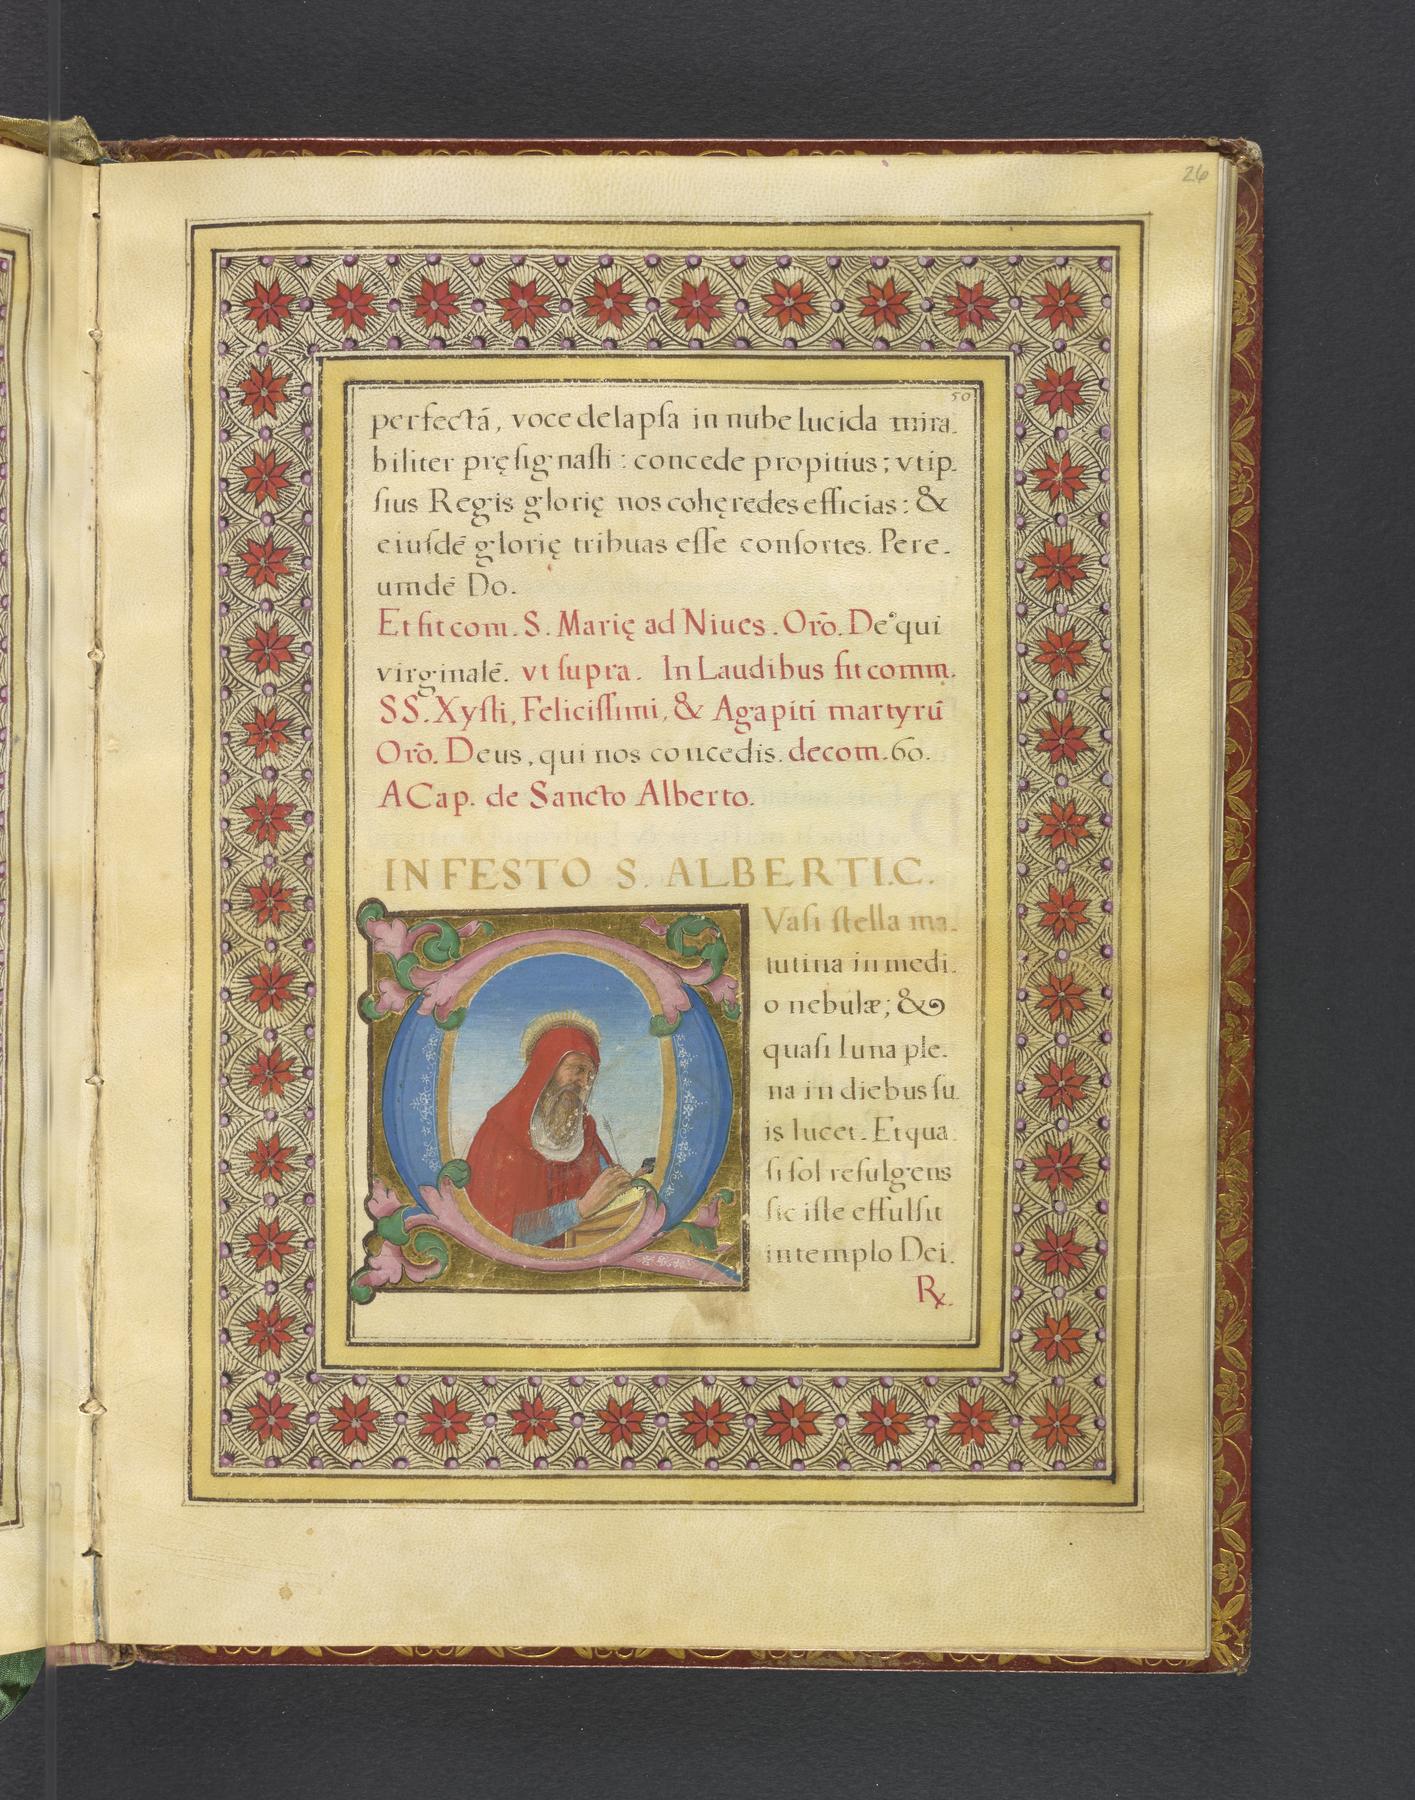 26
50
perfectā, voce delapſa in nube lucida mira-
biliter pręſignaſti : concede propitius ; vt ip-
ſius Regis glorię nos cohęredes efficias : &
eiuſdē glorię tribuas eſſe conſortes. Per e-
umdē Do.
Et fit com. S. Marię ad Niues. Orō. De qui
virginalē. vt ſupra. In Laudibus fit comm.
SS. Xyſti, Feliciſſimi, & Agapiti martyrū
Orō. Deus, qui nos concedis. de com. 60.
A Cap. de Sancto Alberto.
IN FESTO S. ALBERTI. C.
QVaſi ſtella ma-
tutina in medi-
o nebulæ; &
quaſi luna ple-
na in diebus ſu-
is lucet. Et qua-
ſi ſol refulgens
ſic iſte effulſit
in templo Dei.
℞.